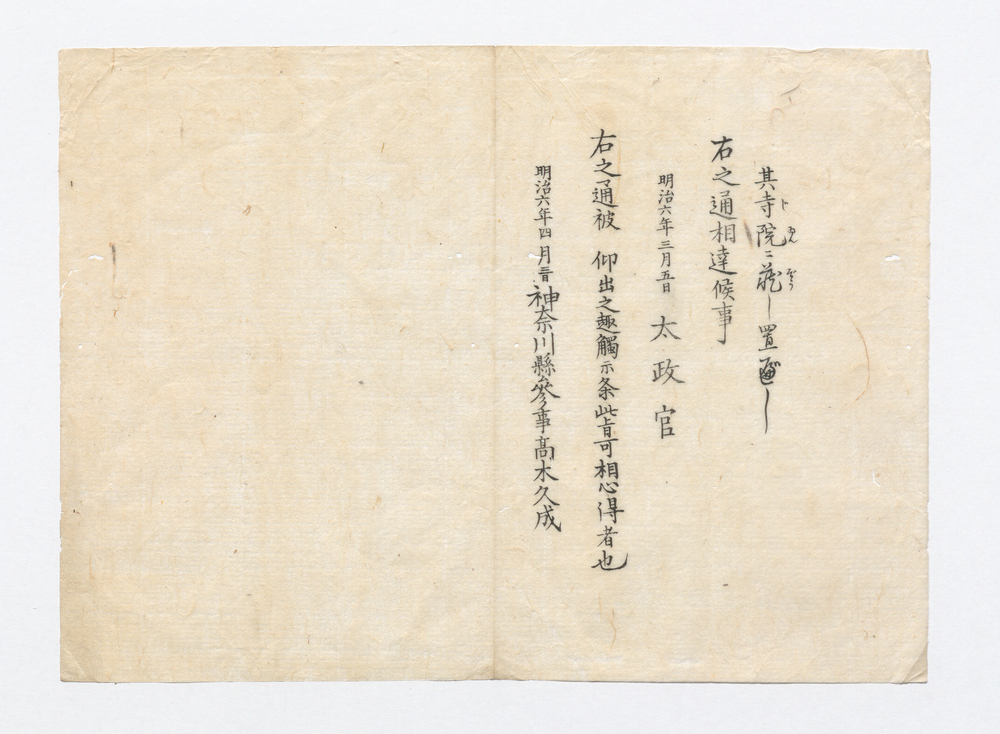 其寺院ニ蔵し置べし
右之通相達候事
明治六年三月五日 太政官
右之通被 仰出之趣觸示条此旨可相心得者也
明治六年四月 神奈川縣參事髙木久成